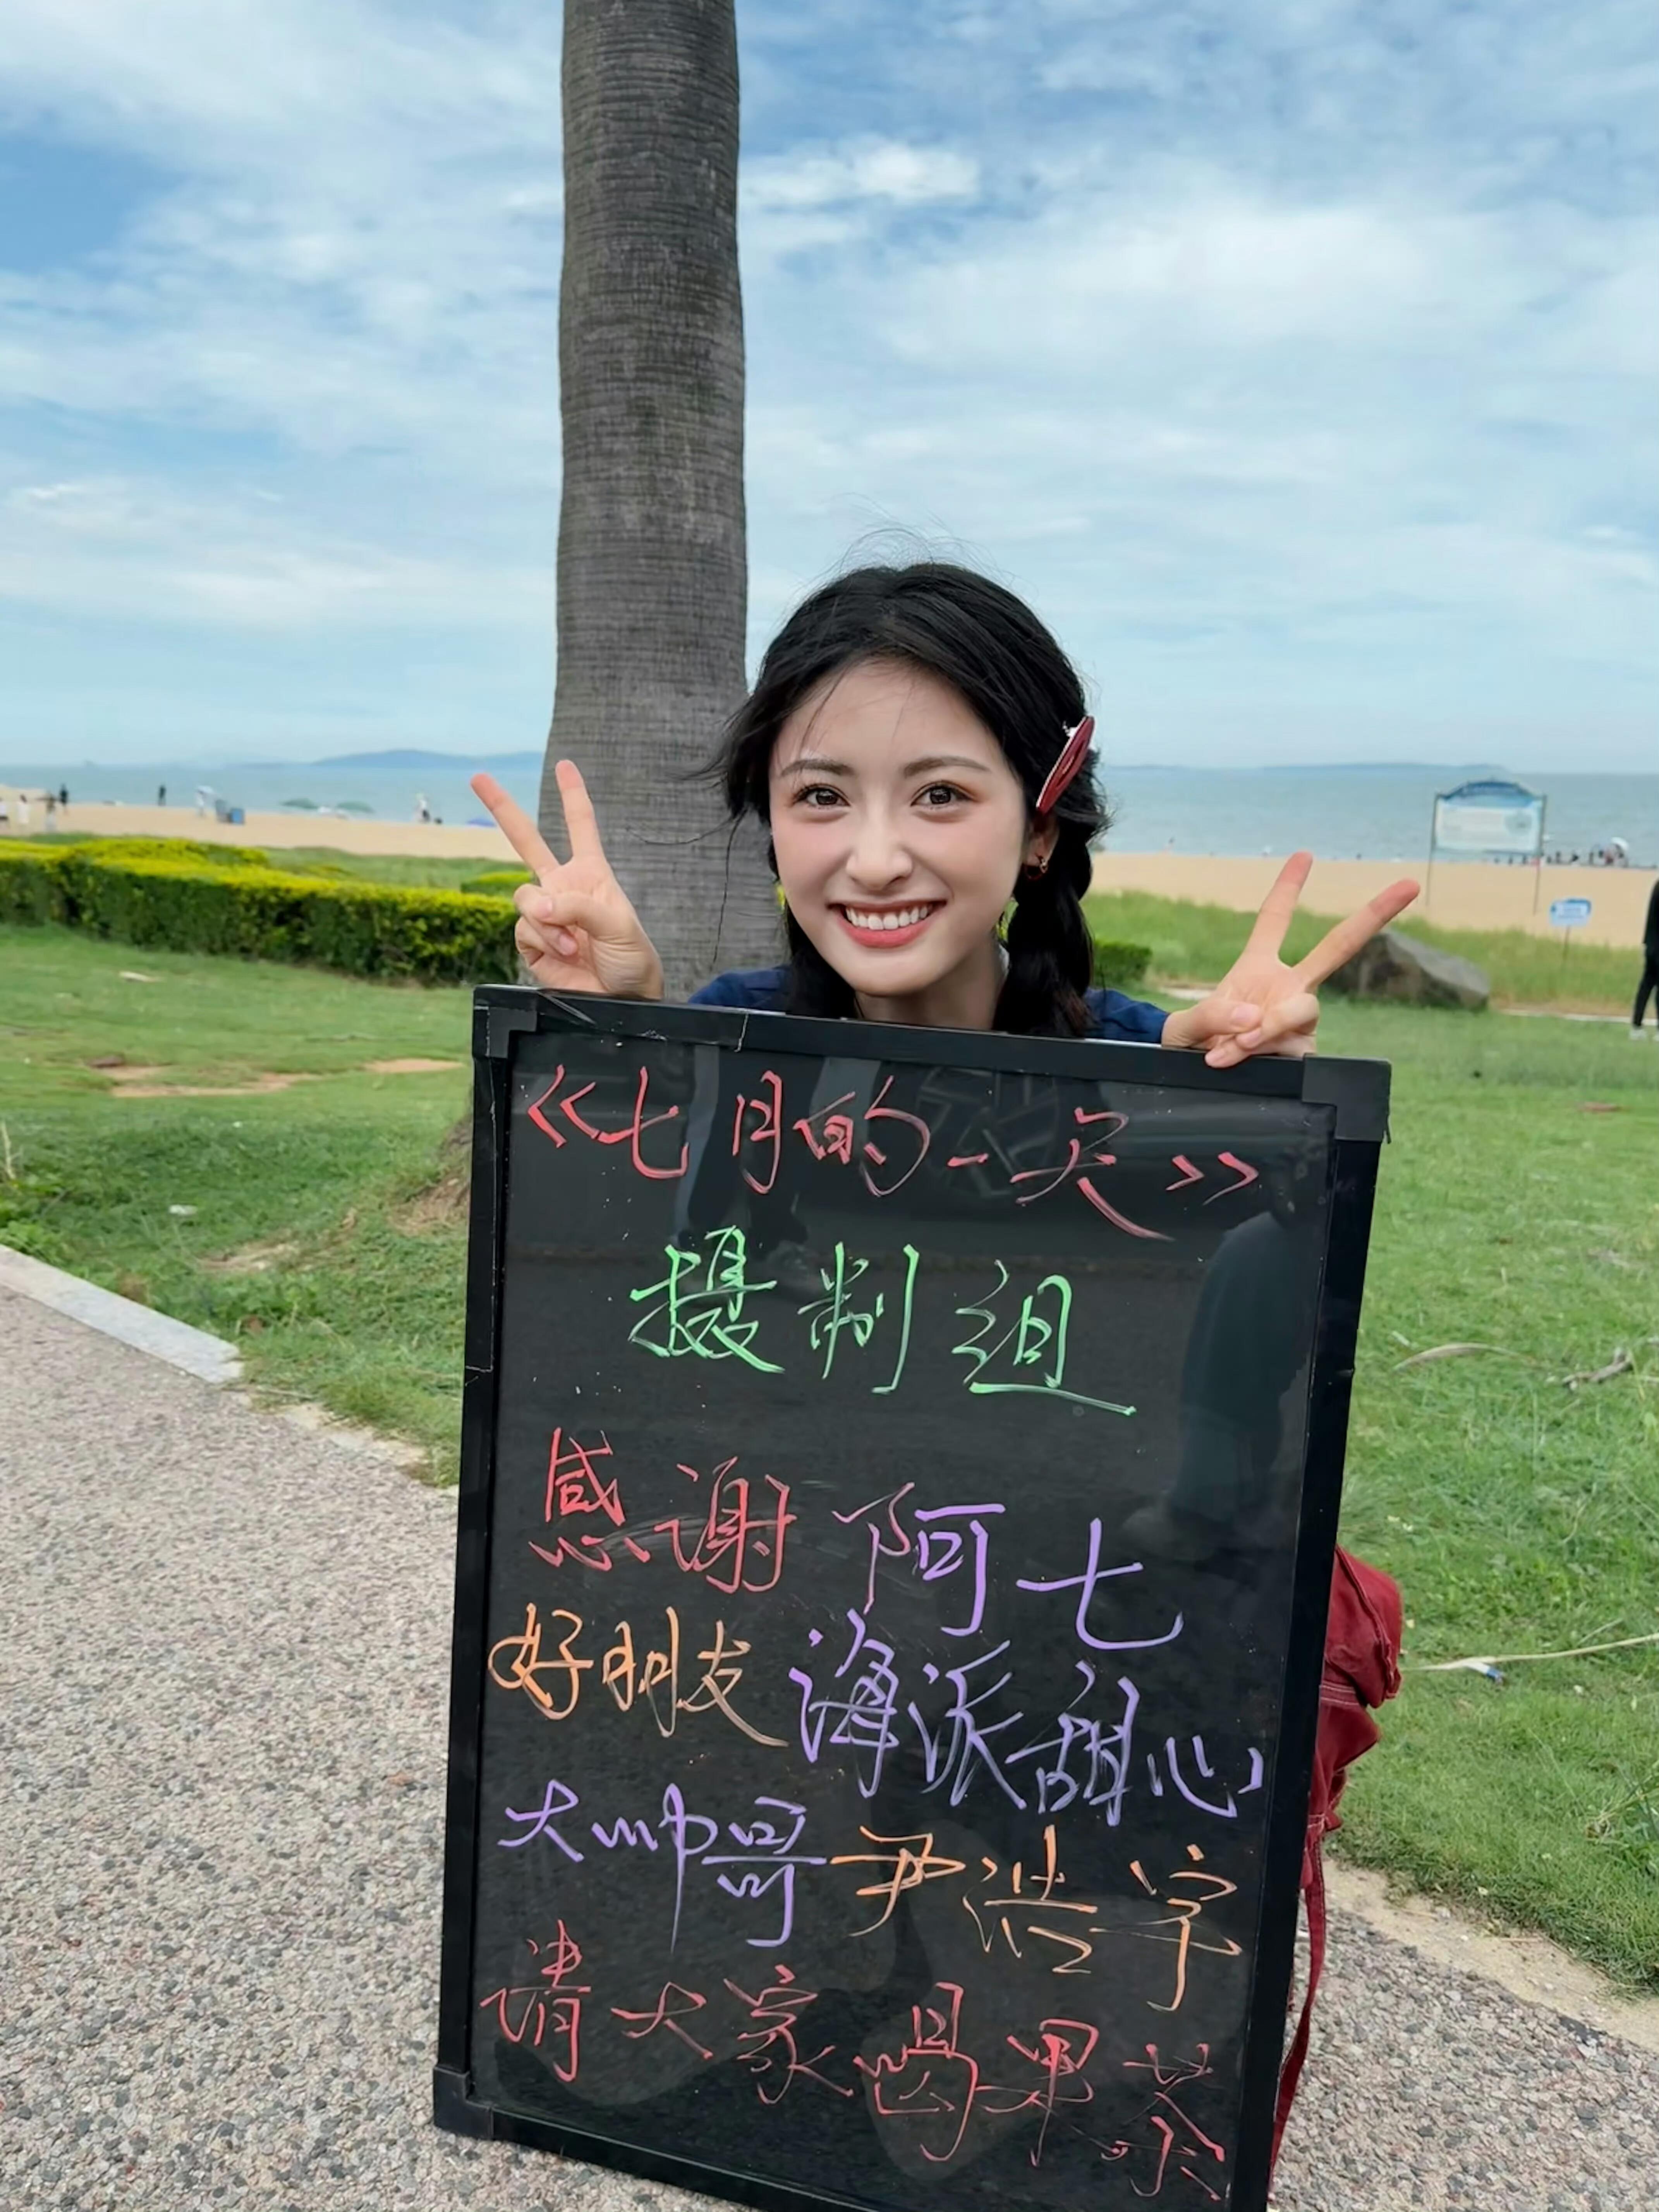 《七月的一天》
摄制组
感谢 阿七
好朋友 海派甜心
大帅哥 尹浩宇
请大家喝果茶